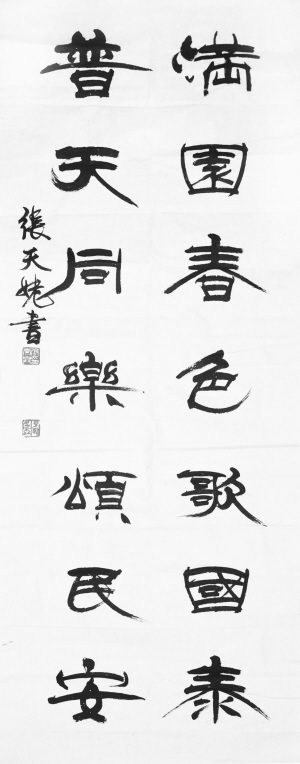 满園春色歌國泰
普天同樂頌民安
張天姥書